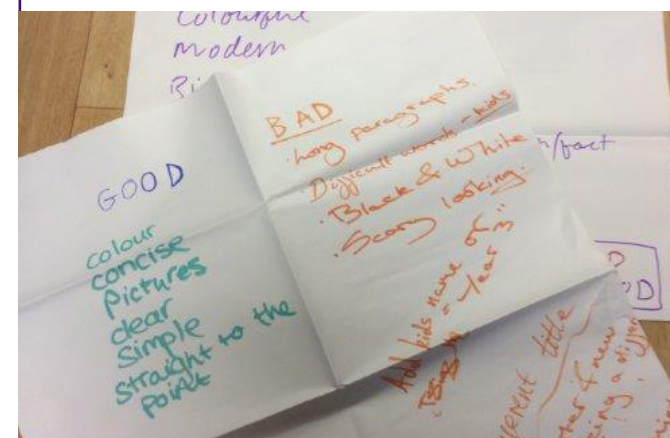 Colourful
Modern
GOOD
colour
concise
Pictures
clear
Simple
straight to the
point
BAD
· Long paragraphs.
· Difficult words - kids
· Black & White
· Scary looking.
Add kids name of
= Year 3"
/fact
title
new